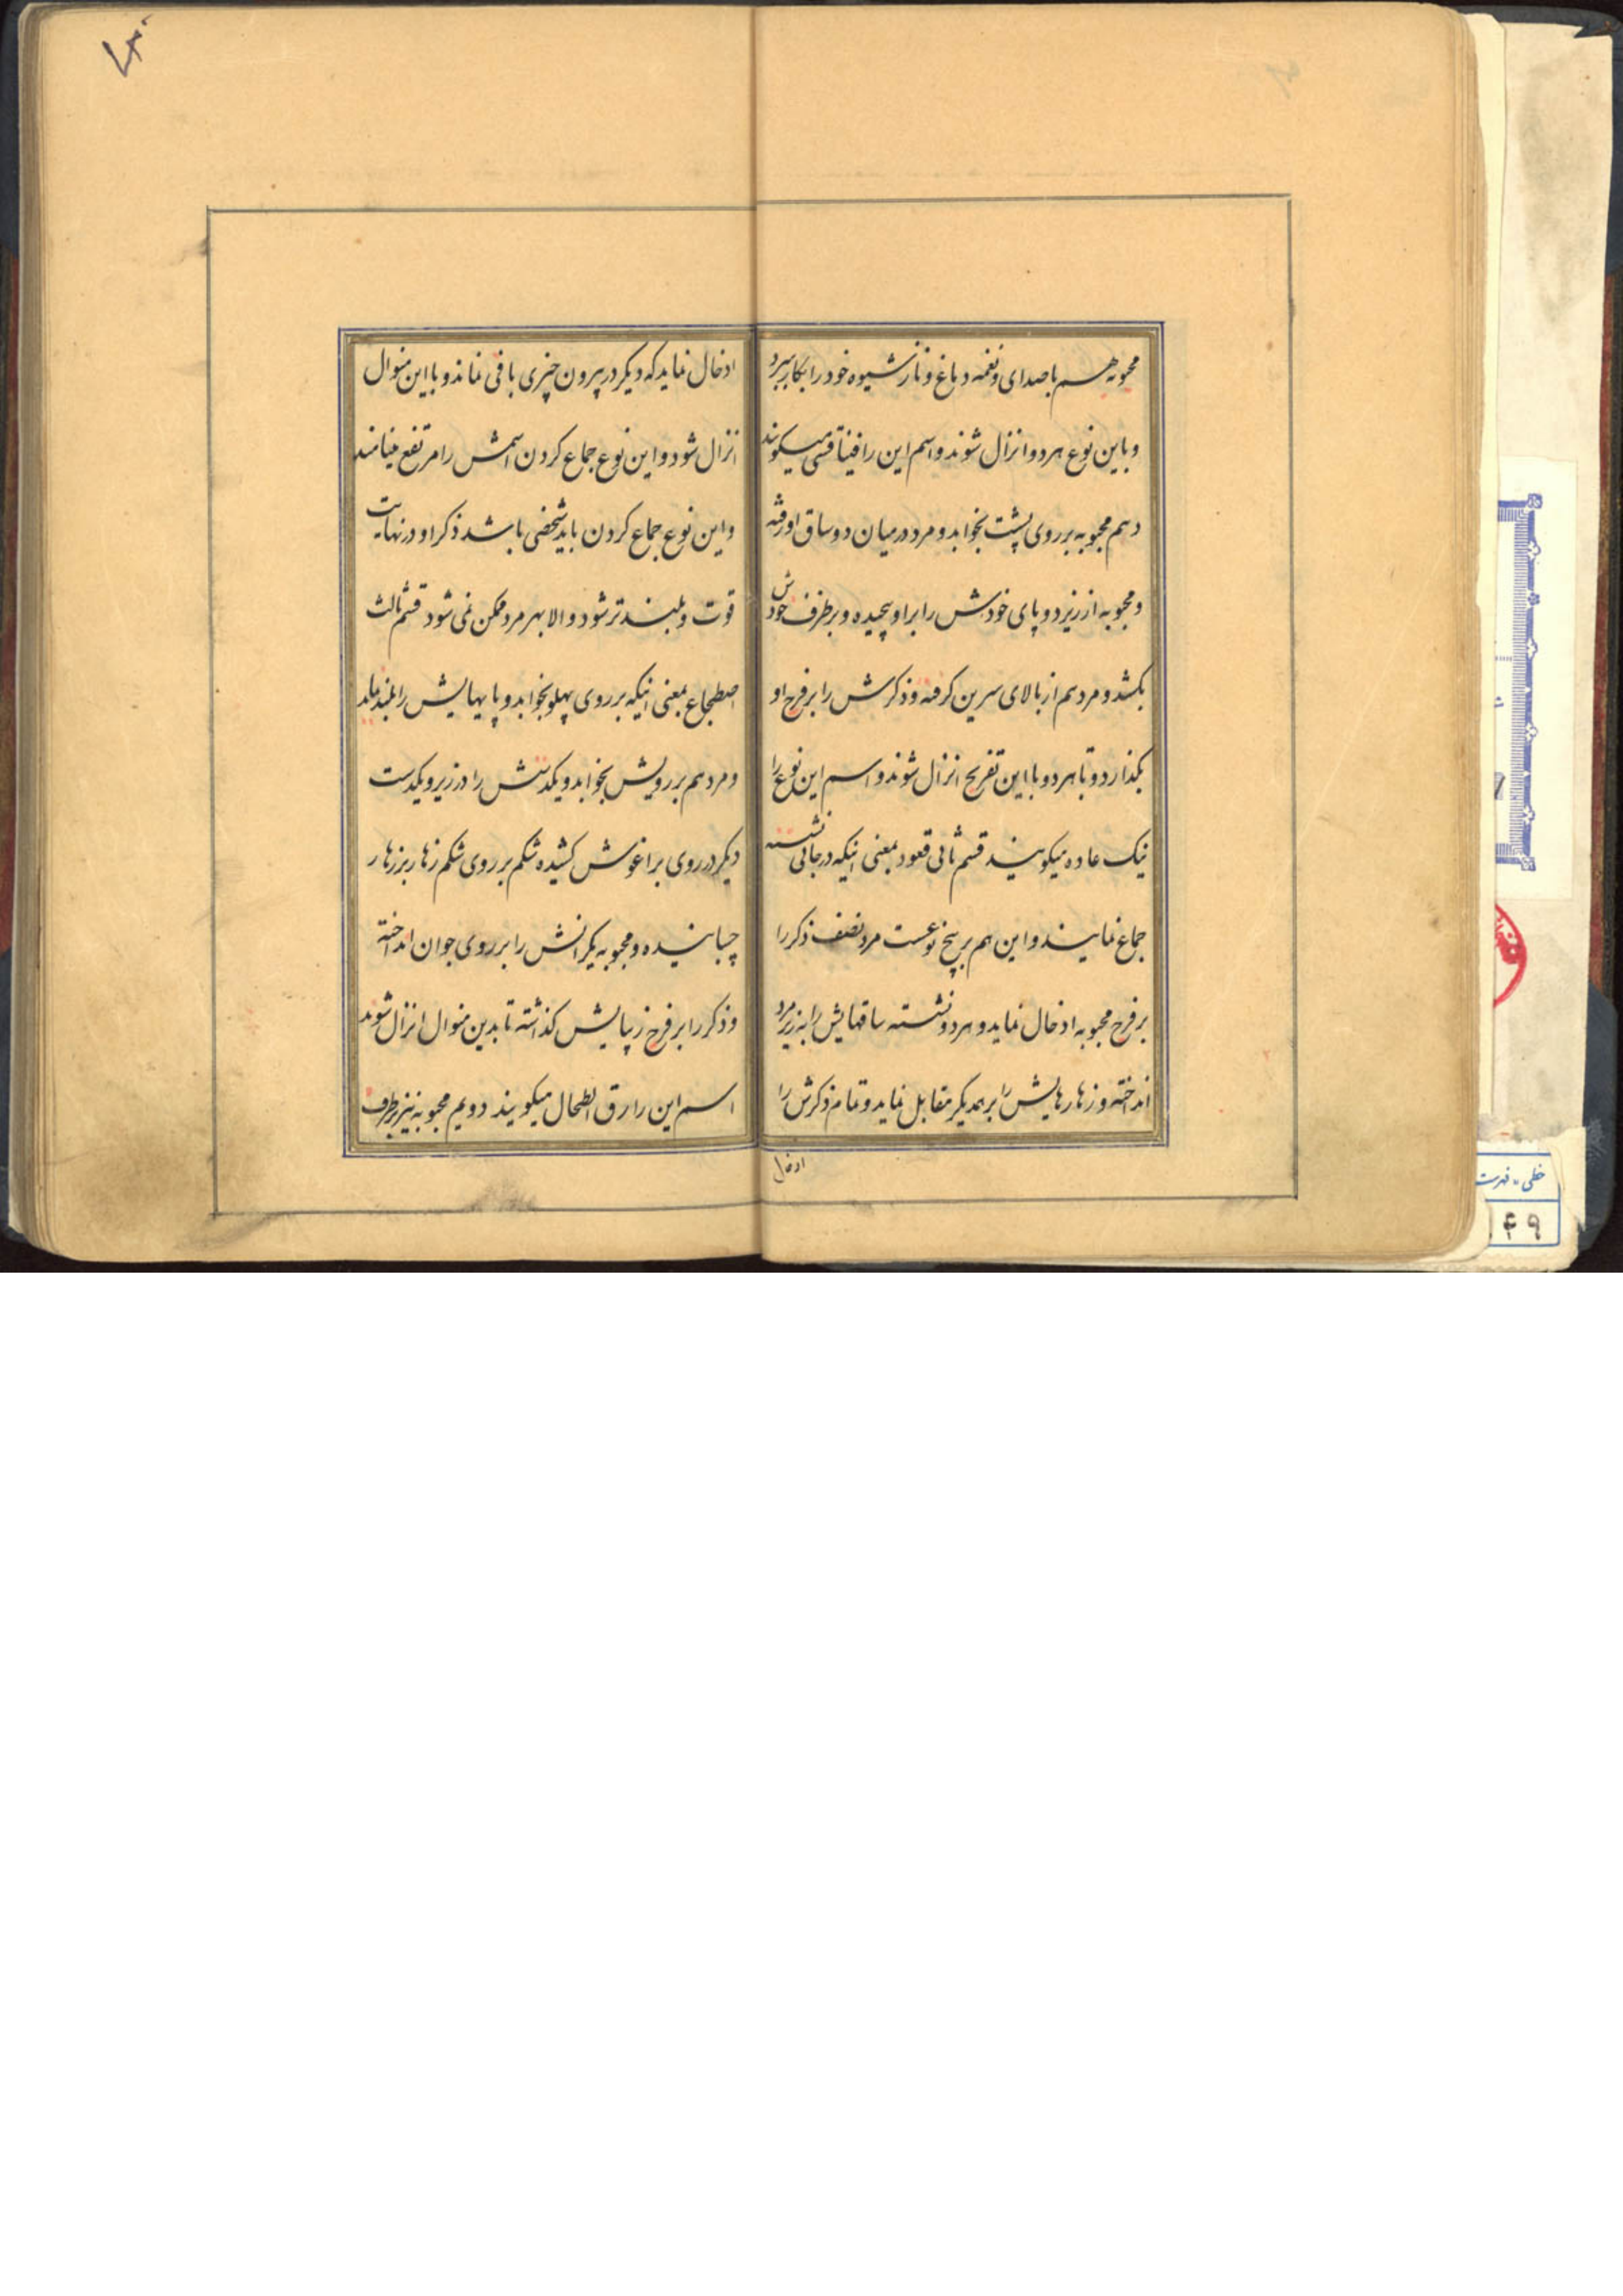 محبوبه هم با صدای و نغمه دماغ و ناز شیوه خود را بکار ببرد
و باین نوع هر دو انزال شوند و اسم این را میکویند
دهم محبوبه بر روی پشت بخوابد و مرد در میان دو ساق او رفته
و محبوبه از زیر دو پای خودش را بر او پیچیده و بر طرف خودش
بکشد و مرد هم از بالای سرین کرفته و ذکرش را بر فرج او
بکذارد و تا هر دو با این تفریح انزال شوند و اسم این نوع را
نیک عاده میکویند قسم ثانی قعود بمعنی اینکه در جائی نشسته
جماع نمایند و این هم بر پنج نوعست مرد نصف ذکر را
بر فرج محبوبه ادخال نماید و هر دو نشسته ساقهایش را به زیر مرد
انداخته و زهارهایش را بر همدیکر مقابل نماید و تمام ذکرش را
ادخال
ادخال نماید که دیکر در بیرون چیزی باقی نماند و با این منوال
انزال شود و این نوع جماع کردن اسمش را مرتفع مینامند
و این نوع جماع کردن باید شخصی باشد ذکر او در نهایت
قوت و بلندتر شود و الا بهر مرد ممکن نمی شود قسم ثالث
اضطجاع بمعنی اینکه بر روی پهلو بخوابد و پایهایش را بلند نماید
و مرد هم بر رویش بخوابد و یکدستش را در زیر و یکدست
دیکر در روی بر اغوش کشیده شکم بر روی شکم زهار بر زهار
چسبانیده و محبوبه یکرانش را بر روی جوان انداخته
و ذکر را بر فرج زیبایش کذاشته تا بدین منوال انزال شوند
اسم این را رق الطحال میکویند دویم محبوبه نیز بطرف
خطی - فهرست